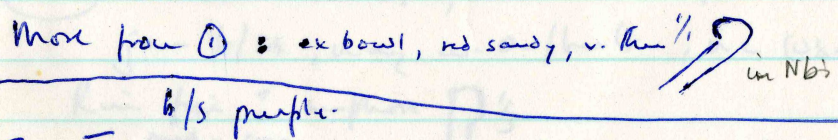 More from ① : ex bowl, red sandy, v. thin
in Nb's
b/s purple.